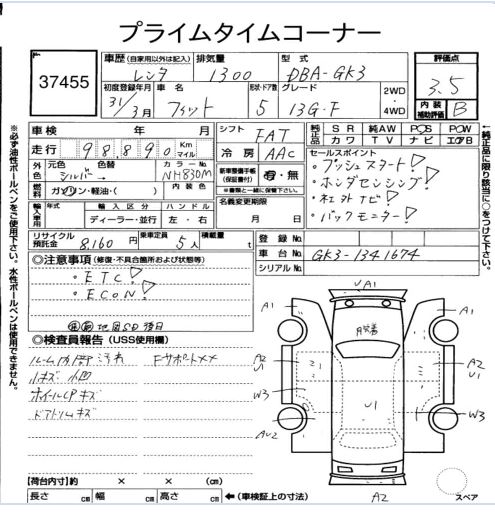 プライムタイムコーナー
37455
車歴 (自家用以外は記入) 排気量 型式
レンタ 1300 DBA-GK3
評価点
3.5
初度登録年月 車名 形状・ドア数 グレード
31年 3月 フィット 5 13G・F
2WD ・ 4WD
内装補助評価 B
車検 年 月
シフト FAT
純正品 SR 純AW PS PW
カワ TV ナビ エアB
走行 98,890 Km マイル
冷房 AAC
セールスポイント
・プッシュスタート!
・ホンダセンシング!
・社外ナビ!
・バックモニター!
外色 元色 色替 カラーNo.
シルバー NH830M
燃料 ガソリン・軽油・( ) 内装色
新車整備手帳 (保証書付) 有・無
※書類と一緒に保管下さい。
名義変更期限
月 日
輸入車用 年式 輸入区分 ハンドル
ディーラー・並行 左・右
リサイクル預託金 8,160 円 乗車定員 5人 積載量 t
登録No.
車台No. GK3-1341674
シリアルNo.
◎注意事項 (修復・不具合箇所および状態等)
・ETC!
・ECON!
地図SD 後日
◎検査員報告 (USS使用欄)
ルーム内 汚れ Fサポート××
小キズ 小凹
ホイールCPキズ
ドアトリムキズ
A1 UA1 A1
A2 U1 A2 U1
W3 U1 W3
AU2 A2
A2
スペア
【荷台内寸】約 × × (cm)
長さ cm 幅 cm 高さ cm ←(車検証上の寸法)
※必ず油性ボールペンをご使用下さい。水性ボールペンは使用できません。
←純正品に限り該当に○をつけて下さい。